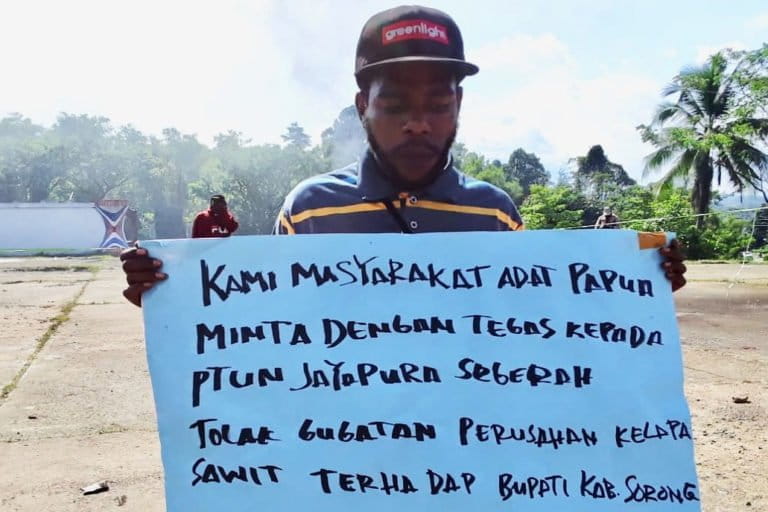 greenlight
KAMI MASYARAKAT ADAT PAPUA
MINTA DENGAN TEGAS KEPADA
PTUN JAYAPURA SEGERAH
TOLAK GUGATAN PERUSAHAN KELAPA
SAWIT TERHADAP BUPATI KAB. SORONG